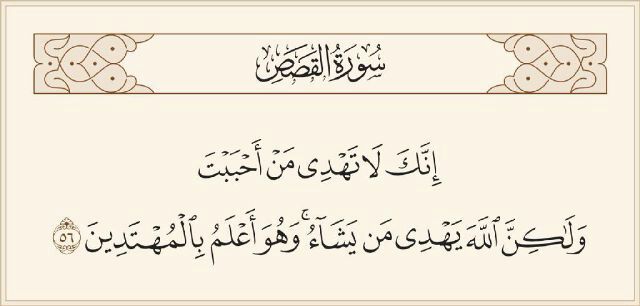 سُورَةُ القَصَصِ
إِنَّكَ لَا تَهْدِى مَنْ أَحْبَبْتَ
وَلَٰكِنَّ ٱللَّهَ يَهْدِى مَن يَشَآءُ ۚ وَهُوَ أَعْلَمُ بِٱلْمُهْتَدِينَ ٥٦